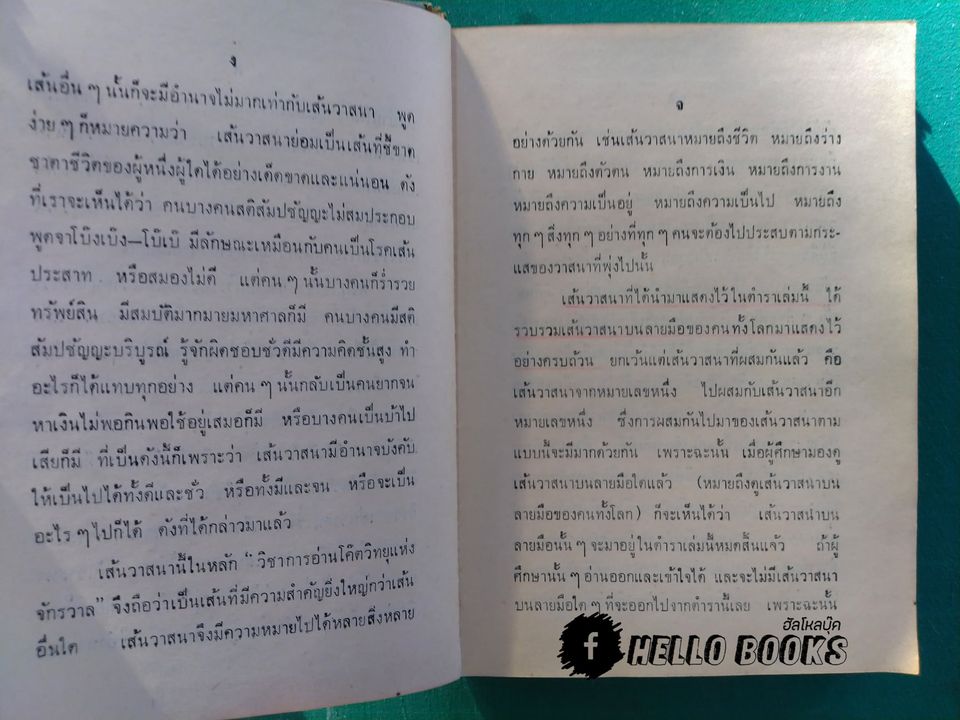 ง
เส้นอื่น ๆ นั้นก็จะมีอำนาจไม่มากเท่ากับเส้นวาสนา พูด
ง่าย ๆ ก็หมายความว่า เส้นวาสนาย่อมเป็นเส้นที่ชี้ขาด
ชาตาชีวิตของผู้หนึ่งผู้ใดได้อย่างเด็ดขาดและแน่นอน ดัง
ที่เราจะเห็นได้ว่า คนบางคนสติสัมปชัญญะไม่สมประกอบ
พูดจาโบ๊งเบ๊ง—โบ๊เบ๊ มีลักษณะเหมือนกับคนเป็นโรคเส้น
ประสาท หรือสมองไม่ดี แต่คน ๆ นั้นบางคนก็ร่ำรวย
ทรัพย์สิน มีสมบัติมากมายมหาศาลก็มี คนบางคนมีสติ
สัมปชัญญะบริบูรณ์ รู้จักผิดชอบชั่วดีมีความคิดชั้นสูง ทำ
อะไรก็ได้แทบทุกอย่าง แต่คน ๆ นั้นกลับเป็นคนยากจน
หาเงินไม่พอกินพอใช้อยู่เสมอก็มี หรือบางคนเป็นบ้าไป
เสียก็มี ที่เป็นดังนี้ก็เพราะว่า เส้นวาสนามีอำนาจบังคับ
ให้เป็นไปได้ทั้งดีและชั่ว หรือทั้งมีและจน หรือจะเป็น
อะไร ๆ ไปก็ได้ ดังที่ได้กล่าวมาแล้ว
เส้นวาสนานี้ในหลัก “วิชาการอ่านโค๊ตวิทยุแห่ง
จักรวาล” จึงถือว่าเป็นเส้นที่มีความสำคัญยิ่งใหญ่กว่าเส้น
อื่นใด เส้นวาสนาจึงมีความหมายไปได้หลายสิ่งหลาย
จ
อย่างด้วยกัน เช่นเส้นวาสนาหมายถึงชีวิต หมายถึงร่าง
กาย หมายถึงตัวตน หมายถึงการเงิน หมายถึงการงาน
หมายถึงความเป็นอยู่ หมายถึงความเป็นไป หมายถึง
ทุก ๆ สิ่งทุก ๆ อย่างที่ทุก ๆ คนจะต้องไปประสบตามกระ-
แสของวาสนาที่พุ่งไปนั้น
เส้นวาสนาที่ได้นำมาแสดงไว้ในตำราเล่มนี้ ได้
รวบรวมเส้นวาสนาบนลายมือของคนทั้งโลกมาแสดงไว้
อย่างครบถ้วน ยกเว้นแต่เส้นวาสนาที่ผสมกันแล้ว คือ
เส้นวาสนาจากหมายเลขหนึ่ง ไปผสมกับเส้นวาสนาอีก
หมายเลขหนึ่ง ซึ่งการผสมกันไปมาของเส้นวาสนาตาม
แบบนี้จะมีมากด้วยกัน เพราะฉะนั้น เมื่อผู้ศึกษามองดู
เส้นวาสนาบนลายมือใดแล้ว (หมายถึงดูเส้นวาสนาบน
ลายมือของคนทั้งโลก) ก็จะเห็นได้ว่า เส้นวาสนาบน
ลายมือนั้น ๆ จะมาอยู่ในตำราเล่มนี้หมดสิ้นแล้ว ถ้าผู้
ศึกษานั้น ๆ อ่านออกและเข้าใจได้ และจะไม่มีเส้นวาสนา
บนลายมือใด ๆ ที่จะออกไปจากตำรานี้เลย เพราะฉะนั้น
ฮัลโหลบุ๊ค
f HELLO BOOKS